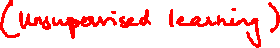 (Unsupervised learning)